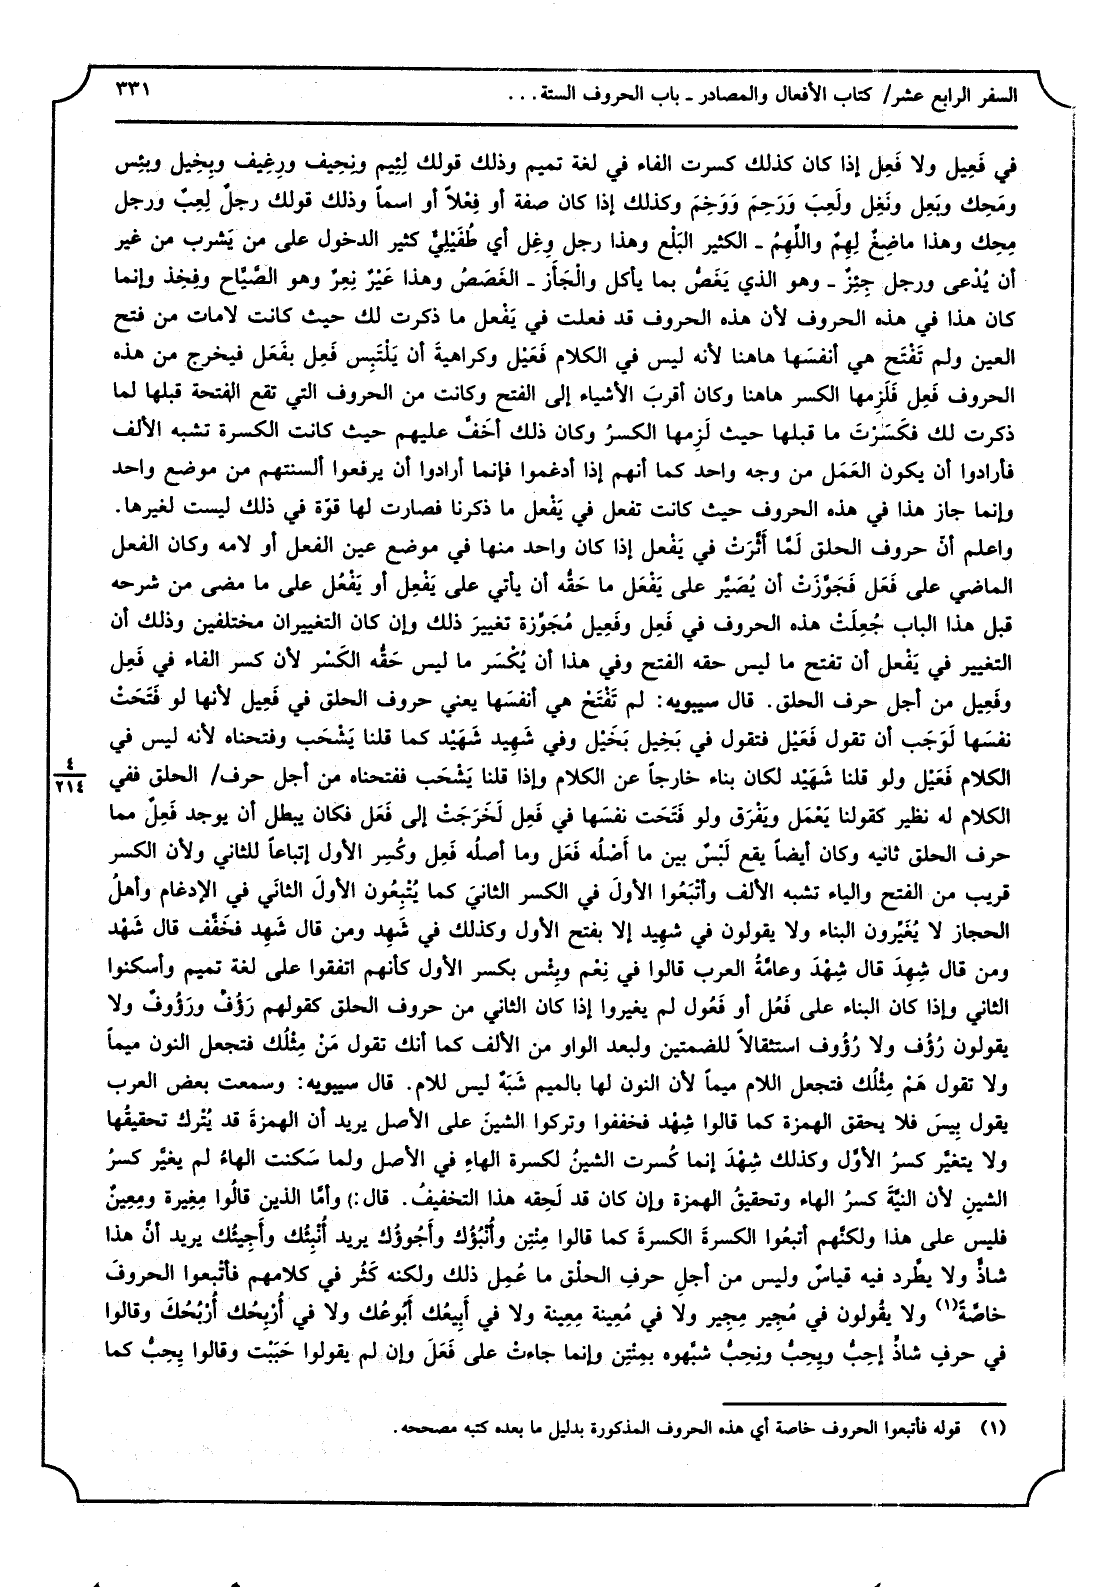 السفر الرابع عشر/ كتاب الأفعال والمصادر ـ باب الحروف الستة . . . ٣٣١
في فَعِيل ولا فَعِل إذا كان كذلك كسرت الفاء في لغة تميم وذلك قولك لِئِيم ونِحِيف ورِغِيف وبِخِيل وبِئِس
ومَحِك وبَعِل ونَغِل ولَعِبَ وَرَحِمَ وَوَخِمَ وكذلك إذا كان صفة أو فِعْلاً أو اسماً وذلك قولك رجلٌ لِعِبٌ ورجل
مِحِك وهذا ماضِغٌ لِهِمٌ واللَّهِمُ ـ الكثير البَلْع وهذا رجل وِغِل أي طُفَيْلِيٌّ كثير الدخول على من يَشرب من غير
أن يُدْعى ورجل جِئِزٌ ـ وهو الذي يَغَصُّ بما يأكل والْجَأَز ـ الغَصَصُ وهذا عَيْرٌ نِعِرٌ وهو الصَّيَّاح وفِخِذ وإنما
كان هذا في هذه الحروف لأن هذه الحروف قد فعلت في يَفْعل ما ذكرت لك حيث كانت لامات من فتح
العين ولم تَفْتَح هي أنفسَها هاهنا لأنه ليس في الكلام فَعَيْل وكراهيةَ أن يَلْتَبِس فَعِل بفَعَل فيخرج من هذه
الحروف فَعِل فَلَزِمها الكسر هاهنا وكان أقربَ الأشياء إلى الفتح وكانت من الحروف التي تقع الفتحة قبلها لما
ذكرت لك فكَسَرْتَ ما قبلها حيث لَزِمها الكسرُ وكان ذلك أخَفَّ عليهم حيث كانت الكسرة تشبه الألف
فأرادوا أن يكون العَمَل من وجه واحد كما أنهم إذا أدغموا فإنما أرادوا أن يرفعوا ألسنتهم من موضع واحد
وإنما جاز هذا في هذه الحروف حيث كانت تفعل في يَفْعل ما ذكرنا فصارت لها قوّة في ذلك ليست لغيرها.
واعلم أنّ حروف الحلق لَمَّا أَثَّرَتْ في يَفْعل إذا كان واحد منها في موضع عين الفعل أو لامه وكان الفعل
الماضي على فَعَل فَجَوَّزَتْ أن يُصَيَّر على يَفْعَل ما حَقُّه أن يأتي على يَفْعِل أو يَفْعُل على ما مضى من شرحه
قبل هذا الباب جُعِلَتْ هذه الحروف في فَعِل وفَعِيل مُجَوِّزة تغييرَ ذلك وإن كان التغييران مختلفين وذلك أن
التغيير في يَفْعل أن تفتح ما ليس حقه الفتح وفي هذا أن يُكْسَر ما ليس حَقُّه الكَسْر لأن كسر الفاء في فَعِل
وفَعِيل من أجل حرف الحلق. قال سيبويه: لم تَفْتَحْ هي أنفسَها يعني حروف الحلق في فَعِيل لأنها لو فَتَحَتْ
نفسَها لَوَجَب أن تقول فَعَيْل فتقول في بَخِيل بَخَيْل وفي شَهِيد شَهَيْد كما قلنا يَشْحَب وفتحناه لأنه ليس في
الكلام فَعَيْل ولو قلنا شَهَيْد لكان بناء خارجاً عن الكلام وإذا قلنا يَشْحَب ففتحناه من أجل حرف/ الحلق ففي
٤
٢١٤
الكلام له نظير كقولنا يَعْمَل ويَفْرَق ولو فَتَحَت نفسَها في فَعِل لَخَرَجَتْ إلى فَعَل فكان يبطل أن يوجد فَعِلٌ مما
حرف الحلق ثانيه وكان أيضاً يقع لَبْسٌ بين ما أَصْلُه فَعَل وما أصلُه فَعِل وكُسِر الأول إتباعاً للثاني ولأن الكسر
قريب من الفتح والياء تشبه الألف وأتْبَعُوا الأولَ في الكسر الثانيَ كما يُتْبِعُون الأولَ الثاني في الإدغام وأهلُ
الحجاز لا يُغَيِّرون البناء ولا يقولون في شهيد إلا بفتح الأول وكذلك في شَهِد ومن قال شَهِد فخَفَّف قال شَهْد
ومن قال شِهِدَ قال شِهْدَ وعامَّةُ العرب قالوا في نِعْم وبِئْس بكسر الأول كأنهم اتفقوا على لغة تميم وأسكنوا
الثاني وإذا كان البناء على فَعُل أو فَعُول لم يغيروا إذا كان الثاني من حروف الحلق كقولهم رَؤُفٌ ورَؤُوفٌ ولا
يقولون رُؤُف ولا رُؤُوف استثقالاً للضمتين ولبعد الواو من الألف كما أنك تقول مَنْ مِثْلُك فتجعل النون ميماً
ولا تقول هَمْ مِثْلُك فتجعل اللام ميماً لأن النون لها بالميم شَبَهٌ ليس للام. قال سيبويه: وسمعت بعض العرب
يقول بِيسَ فلا يحقق الهمزة كما قالوا شِهْد فخففوا وتركوا الشينَ على الأصل يريد أن الهمزةَ قد يُتْرك تحقيقُها
ولا يتغيَّر كسرُ الأوَّل وكذلك شِهْدَ إنما كُسرت الشينُ لكسرة الهاءِ في الأصل ولما سَكنت الهاءُ لم يغيَّر كسرُ
الشينِ لأن النيَّة كسرُ الهاء وتحقيقُ الهمزة وإن كان قد لَحِقه هذا التخفيفُ. قال:) وأمَّا الذين قالُوا مِغِيرة ومِعِينٌ
فليس على هذا ولكنَّهم أتبعُوا الكسرةَ الكسرةَ كما قالوا مِنْتِن وأُنْبُؤُك وأَجُووُك يريد أُنْبِئُك وأَجِيئُك يريد أنَّ هذا
شاذٌّ ولا يطَّرد فيه قياسٌ وليس من أجلِ حرفِ الحلْق ما عُمِل ذلك ولكنه كَثُر في كلامهم فأتْبعوا الحروفَ
خاصَّةً(١) ولا يقُولون في مُجِير مِجِير ولا في مُعِينة مِعِينة ولا في أَبِيعُك أَبُوعُك ولا في أُرْبِحُك أُرْبُحُكَ وقالوا
في حرفٍ شاذٍّ إحِبُّ ويِحِبُّ ونِحِبُّ شبَّهوه بمِنْتِن وإنما جاءتْ على فَعَلَ وإن لم يقولوا حَبَبْت وقالوا يِحِبُّ كما
(١) قوله فأتبعوا الحروف خاصة أي هذه الحروف المذكورة بدليل ما بعده كتبه مصححه.